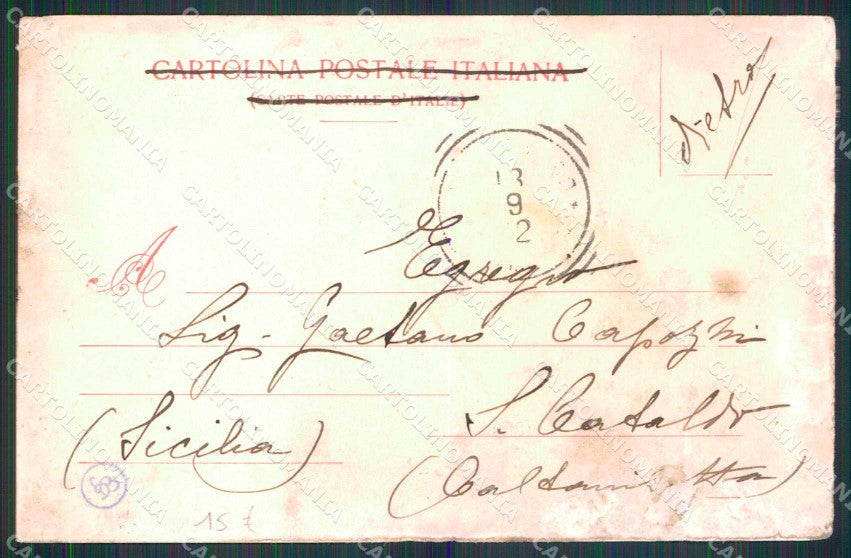 CARTOLINA POSTALE ITALIANA
(CARTE POSTALE D'ITALIE)
dietro
13
9
2
A
Egregio
Sig. Gaetano Capozzi
S. Cataldo
(Sicilia)
(Caltanissetta)
15 €
CARTOLINOMANIA